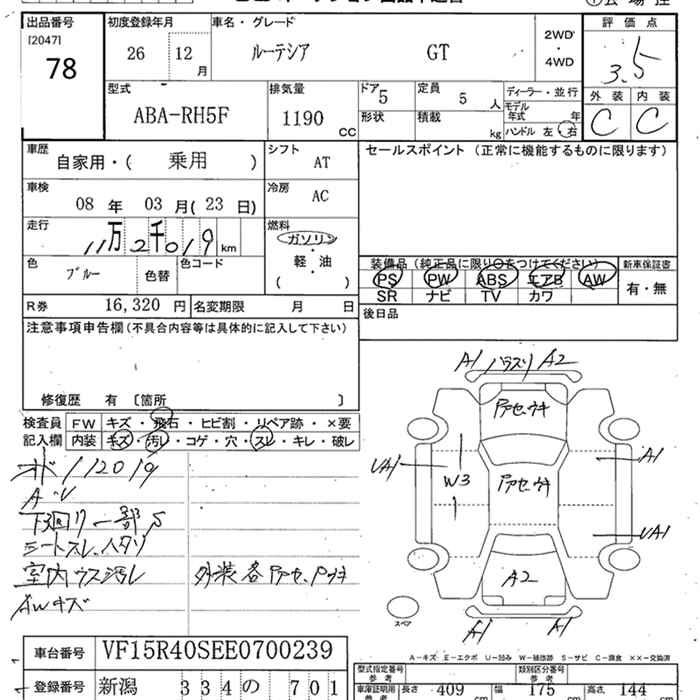 出品番号 初度登録年月 車名・グレード 評価点
[2047] 78 26 12月 ルーテシア GT 2WD・4WD 3.5
型式 排気量 ドア 5 定員 5人 ディーラー・並行 外装 内装
ABA-RH5F 1190 CC 形状 積載 kg モデル年式 年 ハンドル 左 右 C C
車歴 自家用・( 乗用 ) シフト AT セールスポイント (正常に機能するものに限ります)
車検 08年 03月(23日) 冷房 AC
走行 11万2千019 km 燃料 ガソリン・軽・油 ( )
色 ブルー 色替 色コード 装備品 (純正品に限り○をつけてください) 新車保証書
PS PW ABS エアB AW 有・無
SR ナビ TV カワ
R券 16,320 円 名変期限 月 日 後日品
注意事項申告欄(不具合内容等は具体的に記入して下さい)
修復歴 有 〔箇所 〕
検査員記入欄 FW キズ・飛石・ヒビ割・リペア跡・×要
内装 キズ・汚レ・コゲ・穴・スレ・キレ・破レ
A1 バラスリ A2
オド112019
下廻り一部S
シートスレ、ハタリ
室内ウス汚レ
AWキズ
UA1 W3 A1
UA1
A2
A1 A1
スペア
A-キズ E-エクボ U-凹み W-補修跡 S-サビ C-腐食 ××-交換済
車台番号 VF15R40SEE0700239
型式指定番号 参考 類別区分番号 参考
登録番号 新潟 334 の 701
車庫証明用 参考 長さ 409 cm 幅 175 cm 高さ 44